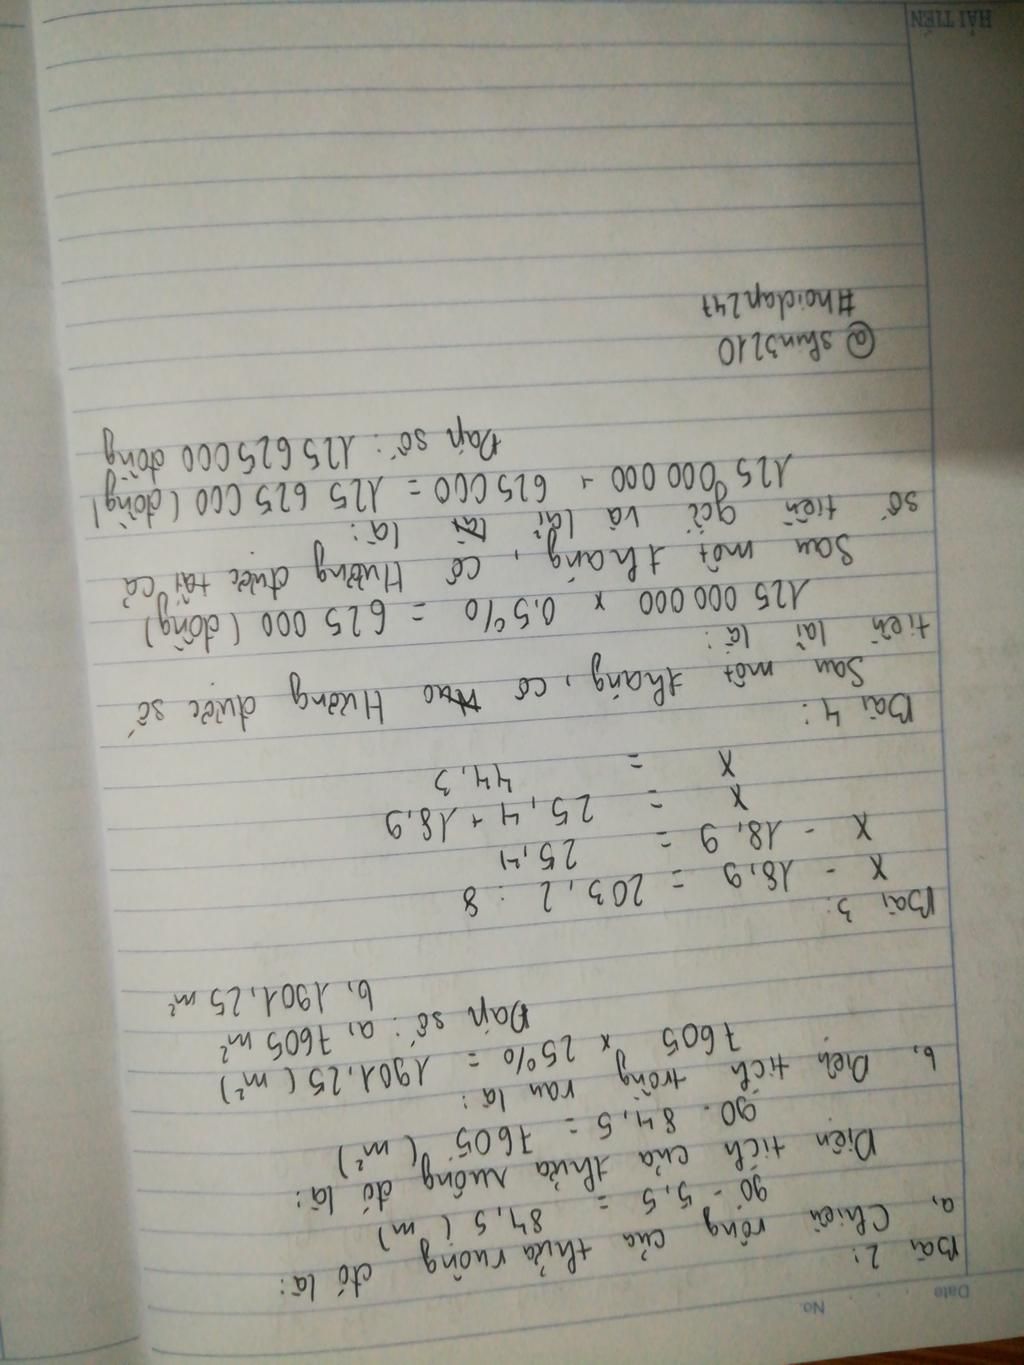 Date
No.
Bài 2:
a, Chiều rộng của thửa ruộng đó là:
90 - 5,5 = 84,5 (m)
Diện tích của thửa ruộng đó là:
90 . 84,5 = 7605 (m²)
b, Diện tích trồng rau là:
7605 x 25% = 1901,25 (m²)
Đáp số: a, 7605 m²
b, 1901,25 m²
Bài 3:
X - 18,9 = 203,2 : 8
X - 18,9 = 25,4
X = 25,4 + 18,9
X = 44,3
Bài 4:
Sau một tháng, cô Hương được số
tiền lãi là:
125 000 000 x 0,5% = 625 000 (đồng)
Sau một tháng, cô Hương được tất cả
số tiền gửi và lãi là:
125 000 000 + 625 000 = 125 625 000 (đồng)
Đáp số: 125 625 000 đồng
@shin3210
#hoidap247
HẢI TIẾN